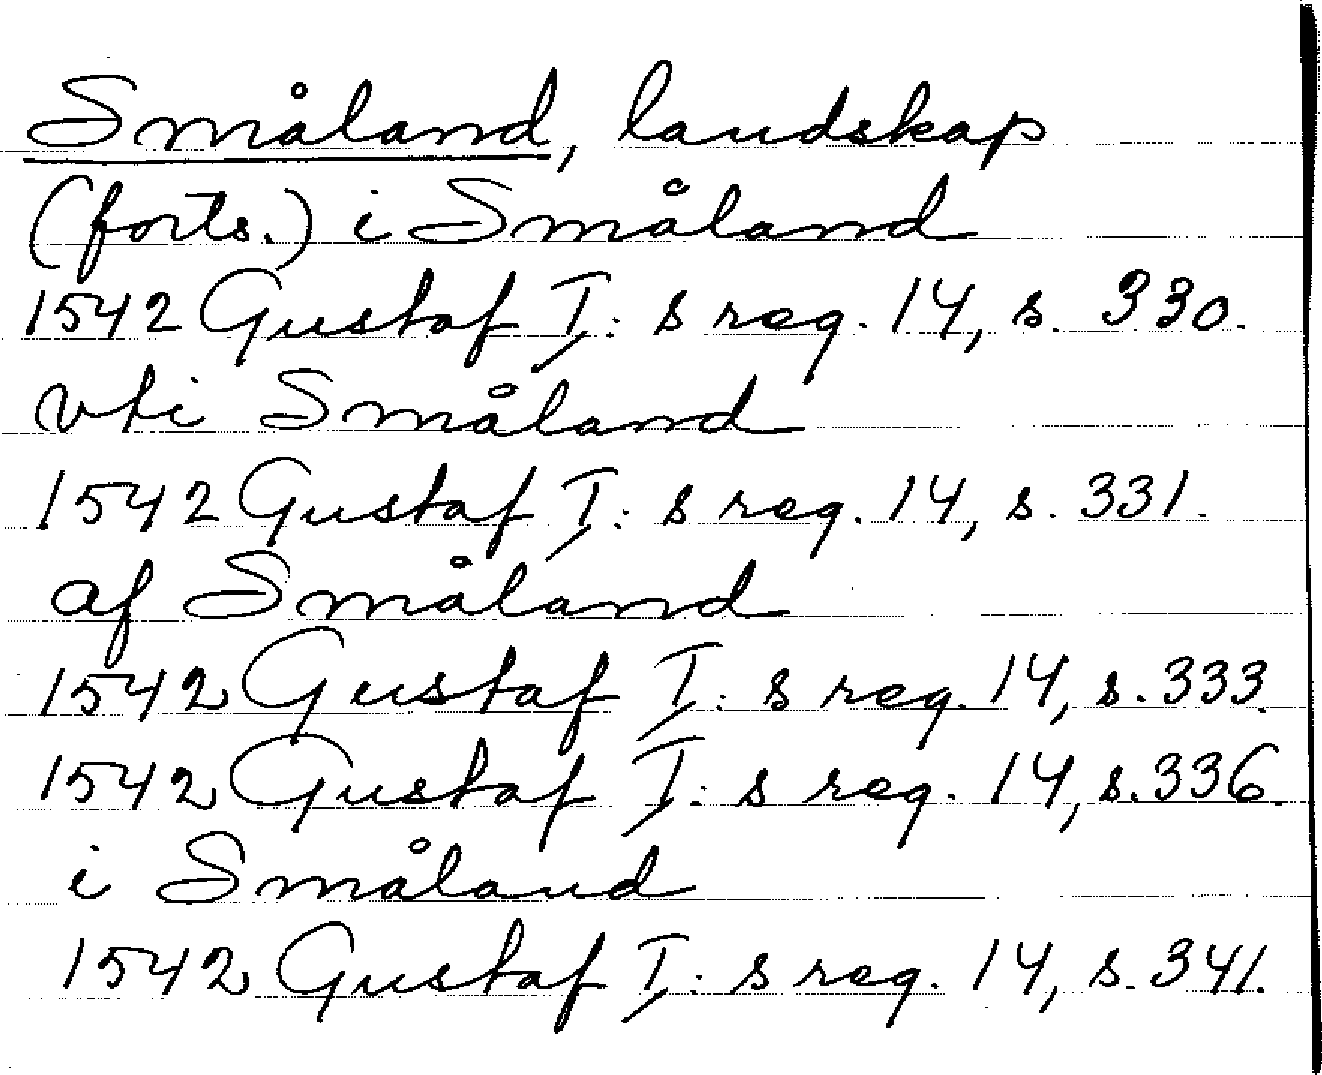 Småland, landskap
(forts.) i Småland
1542 Gustaf I: s reg. 14, s. 330.
vti Småland
1542 Gustaf I: s reg. 14, s. 331.
af Småland
1542 Gustaf I: s reg. 14, s. 333.
1542 Gustaf I: s reg. 14, s. 336.
i Småland
1542 Gustaf I: s reg. 14, s. 341.